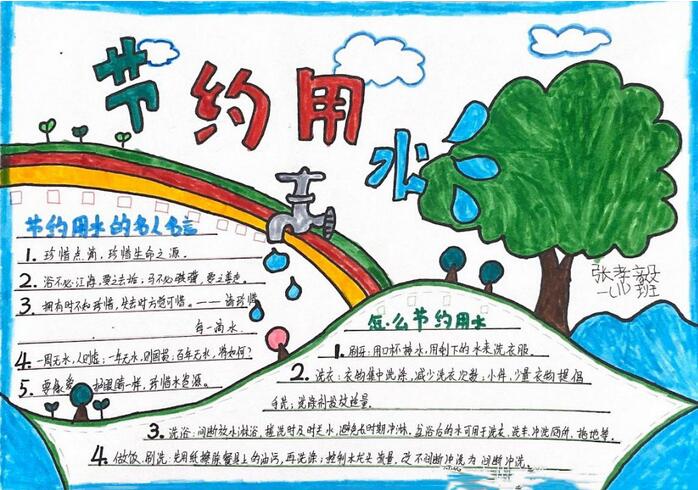 节约用水
节约用水的名人名言
1. 珍惜点滴，珍惜生命之源。
2. 浴不必江海，要之去垢；马不必骐骥，要之善走。
3. 拥有时不知珍惜，失去时方觉可惜。——请珍惜
每一滴水
4. 一周无水，人何憔；一年无水，则国　百年无水，将如何？
5. 要像　　眼睛一样，珍惜水资源。
张孝毅
一(4)班
怎么节约用水
1. 刷牙：用口杯接水，用剩下的水来洗衣服.
2. 洗衣：衣物集中洗涤，减少洗衣次数；小件、少量衣物提倡
手洗；洗涤剂投放适量.
3. 洗浴：间断放水淋浴，搓洗时及时关水，避免长时期冲淋，盆浴后的水可用于洗衣、洗车、冲洗厕所、拖地等.
4. 做饭、刷洗：先用纸擦除餐具上的油污，再洗涤；控制水龙头流量，改不间断冲洗为间断冲洗.